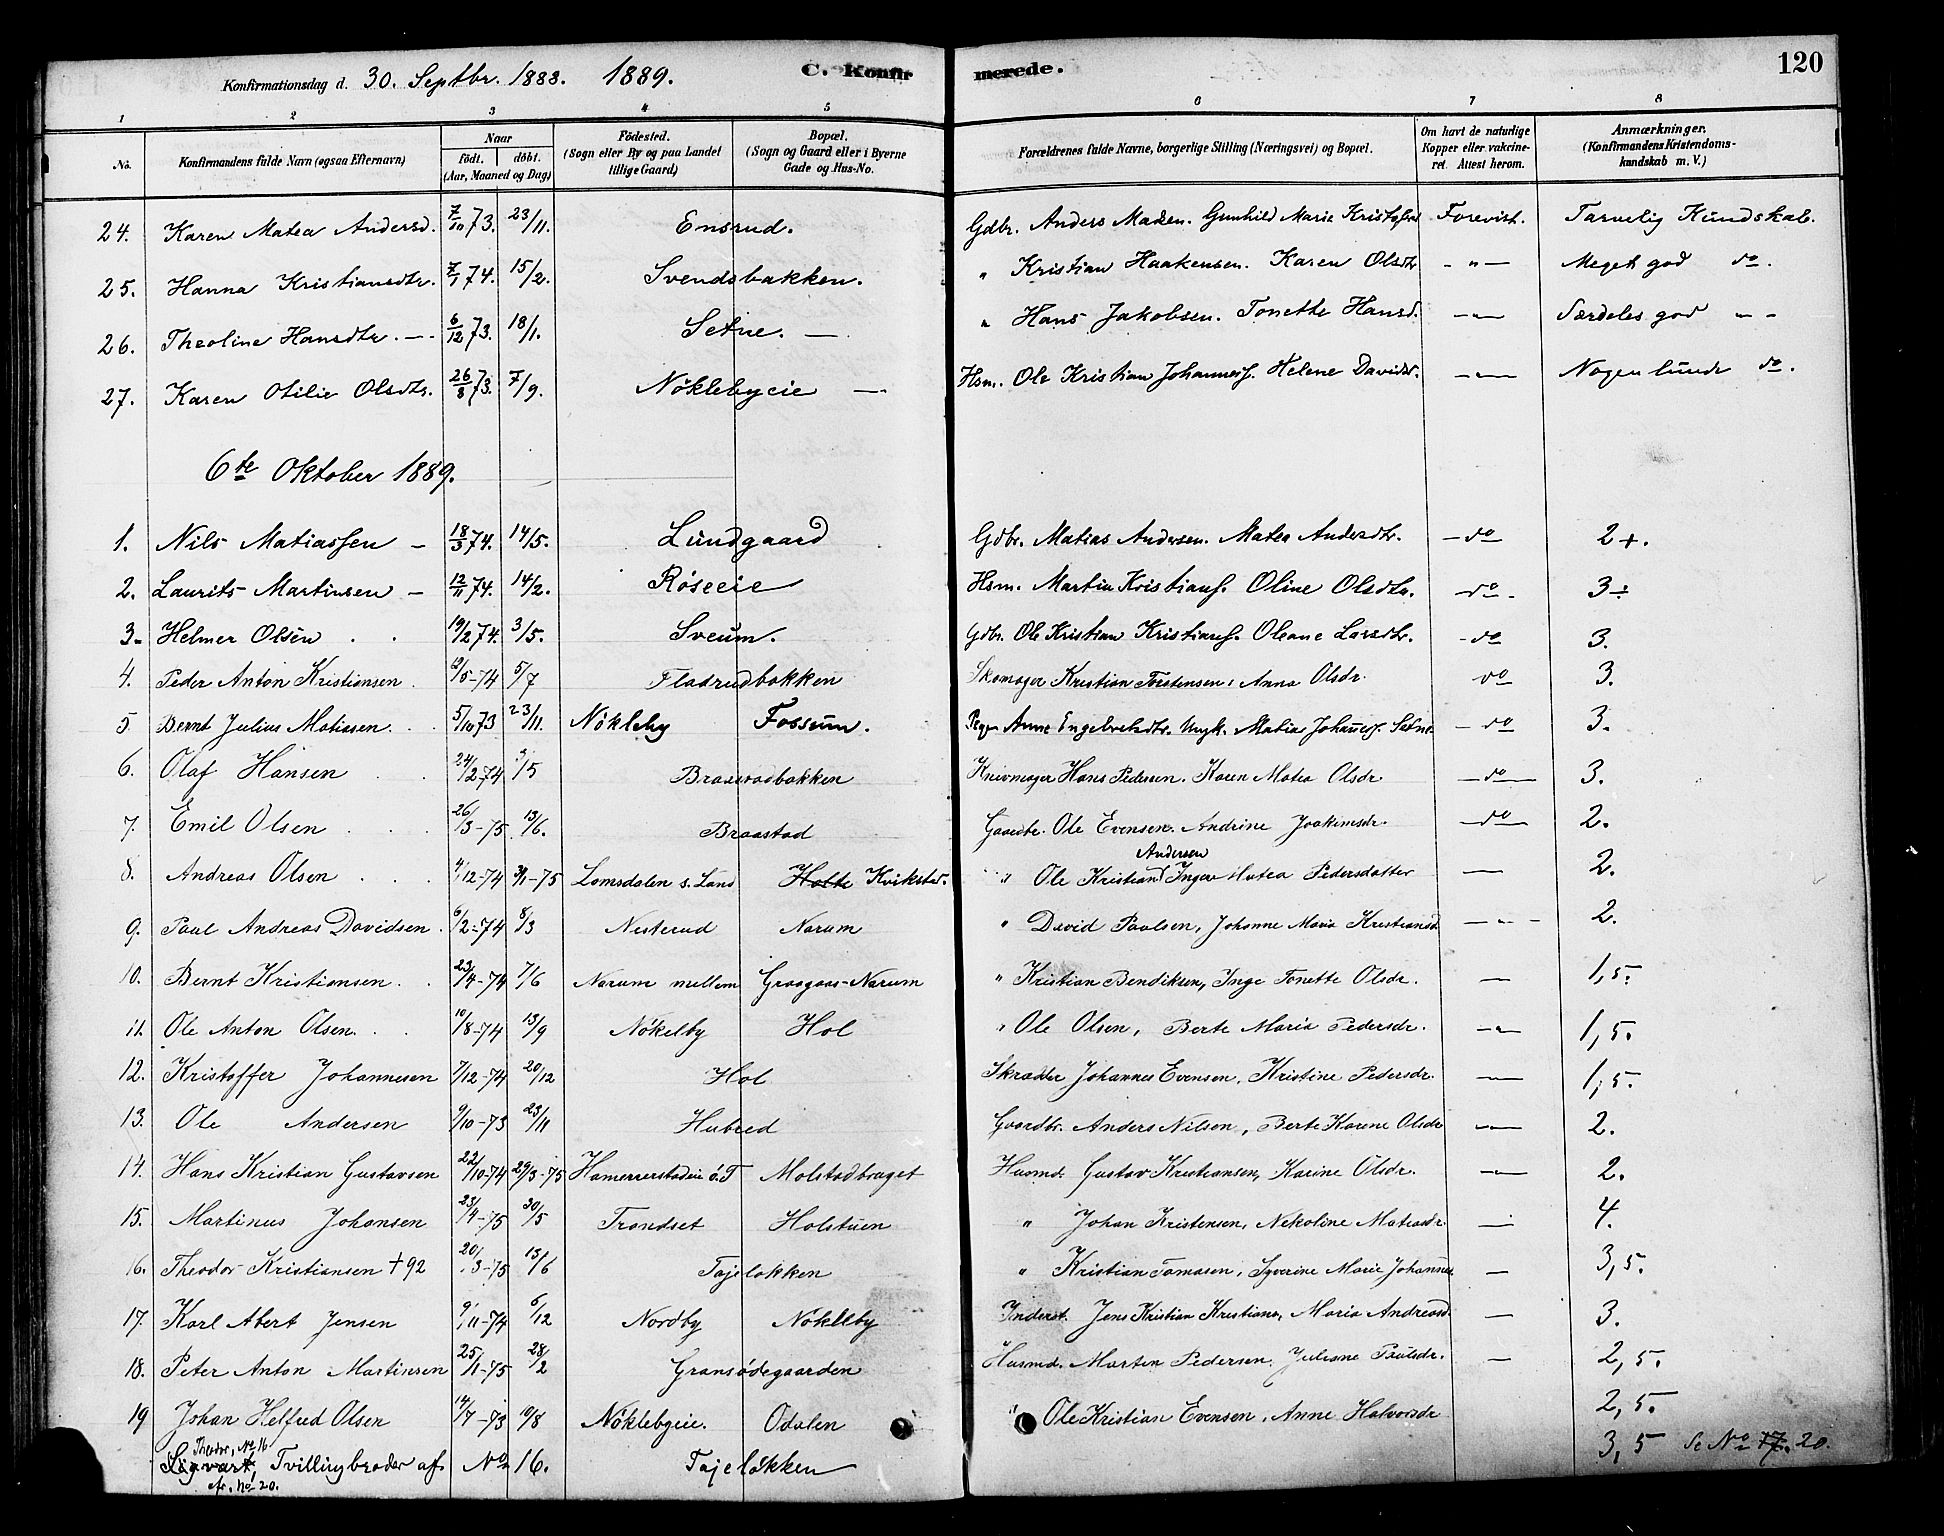 Konfirmationsdag d. 30. Septbr. 1888. 1889. C. Konfirmerede. 120
1 2 3 4 5 6 7 8
No. Konfirmandens fulde Navn (ogsaa Efternavn) Naar født. døbt. (Aar, Maaned og Dag) Fødested. (Sogn eller By og paa Landet tillige Gaard) Bopæl. (Sogn og Gaard eller i Byerne Gade og Hus-No. Forældrenes fulde Navne, borgerlige Stilling (Næringsvei) og Bopæl. Om havt de naturlige Kopper eller vakcineret. Attest herom. Anmærkninger. (Konfirmandens Kristendomskundskab m. V.)
24. Karen Matea Andersd. 7/10 73. 23/11. Ensrud. Gdbr. Anders Madsen. Gunhild Marie Forevist. Tarvelig Kundskab.
25. Hanna Kristiansdtr. 7/1 74. 15/2. Svendsbakken. " Kristian Haakensen. Karen Olsdtr - " - Meget god do.
26. Theoline Hansdtr. - 6/12 73. 18/1. Setne. - " Hans Jakobsen. Tonette Hansd. - " - Særdeles god " -
27. Karen Otilie Olsdtr. 26/8 73. 7/9. Nøklebyeie - Hsm. Ole Kristian Johanness. Helene Davidsd. - " - Nogenlunde do.
6te Oktober 1889.
1. Nils Matiassen - 18/3 74. 14/5. Lundgaard Gdbr. Matias Andersen. Matea Andersdtr. - do 2+.
2. Laurits Martinsen - 12/11 74. 14/2. Røseeie Hsm. Martin Kristians. Oline Olsdtr. - do - 3÷
3. Helmer Olsen . . 19/2 74. 3/5. Sveum. Gdbr. Ole Kristian Kristians. Oleane Larsdtr. - do 3.
4. Peder Anton Kristiansen. 19/5-74 5/7 Fladrudbakken Skomager Kristian Torstensen, Anna Olsdr. do 3.
5 Bernt Julius Matiasen. . 5/10 73 23/11. Nøkleby Fossum. Anne Engebretsdtr. Ungk. Matias Johanness. Setne. - do 3.
6. Olaf Hansen . . 24/2-74 /5 Braastadbakken Knivmager Hans Pedersen. Karen Matea Olsdr. - do 3.
7. Emil Olsen . . . 26/3-75. 13/6. Braastad Gaardbr. Ole Evensen. Andrine Joakimsdr. - do 2.
8. Andreas Olsen . . . 4/12-74 3/1-75 Lomsdalen s. Land Holte Kvikstad. " Ole Kristian Andersen Inger Matea Pedersdatter - 2.
9. Paul Andreas Davidsen. 6/2-74 8/3 Nesterud Narum " David Paulsen, Johanne Maria Kristiansd - " - 2.
10. Bernt Kristiansen . . 23/4-74 7/6 Narum mellem Graagaas-Narum " Kristian Bendiksen, Inge Tonette Olsdr. - 1,5.
11 Ole Anton Olsen. . . 10/8-74 13/9 Nøkelby Hol " Ole Olsen, Berte Maria Pedersdr. - " - 1,5.
12. Kristoffer Johannesen 7/12-74 20/12 Hol Skrædder Johannes Evensen, Kristine Pedersdr. - " - 1,5.
13. Ole Andersen 9/10-73 23/11 Hubred Gaardbr. Anders Nilsen, Berte Karene Olsdr - " - 2.
14. Hans Kristian Gustavsen 22/10-74 29/3-75 Hammerstadeie ö. T Molstadbraget Husmd. Gustav Kristiansen, Karine Olsdr. - " - 2.
15. Martinus Johansen 23/4-75 30/5 Trondset Holstuen " Johan Kristensen, Nekoline Matiasdr. - 4.
16. Theodor Kristiansen † 92 20/3-75 13/6 Tajeløkken " Kristian Tomasen, Syverine Marie Johannes. - 3,5.
17. Karl Abert Jensen 9/11-74 6/12 Nordby Nøkleby Inderst. Jens Kristian Kristians, Maria Andreasd. - 3.
18. Peter Anton Martinsen 25/1-75 28/2 Gransødegaarden Husmd. Martin Pedersen. Juliane Paulsdr. - 2,5.
19 Johan Helfred Olsen 14/7-73 10/8 Nøklebyeie. Odalen " Ole Kristian Evensen. Anne Halvorsdr 2,5.
Theodor, No 16
Sigvart, Tvillingbroder af No 16. Tajeløkken 3,5 Se No 17. 20.
No 20.